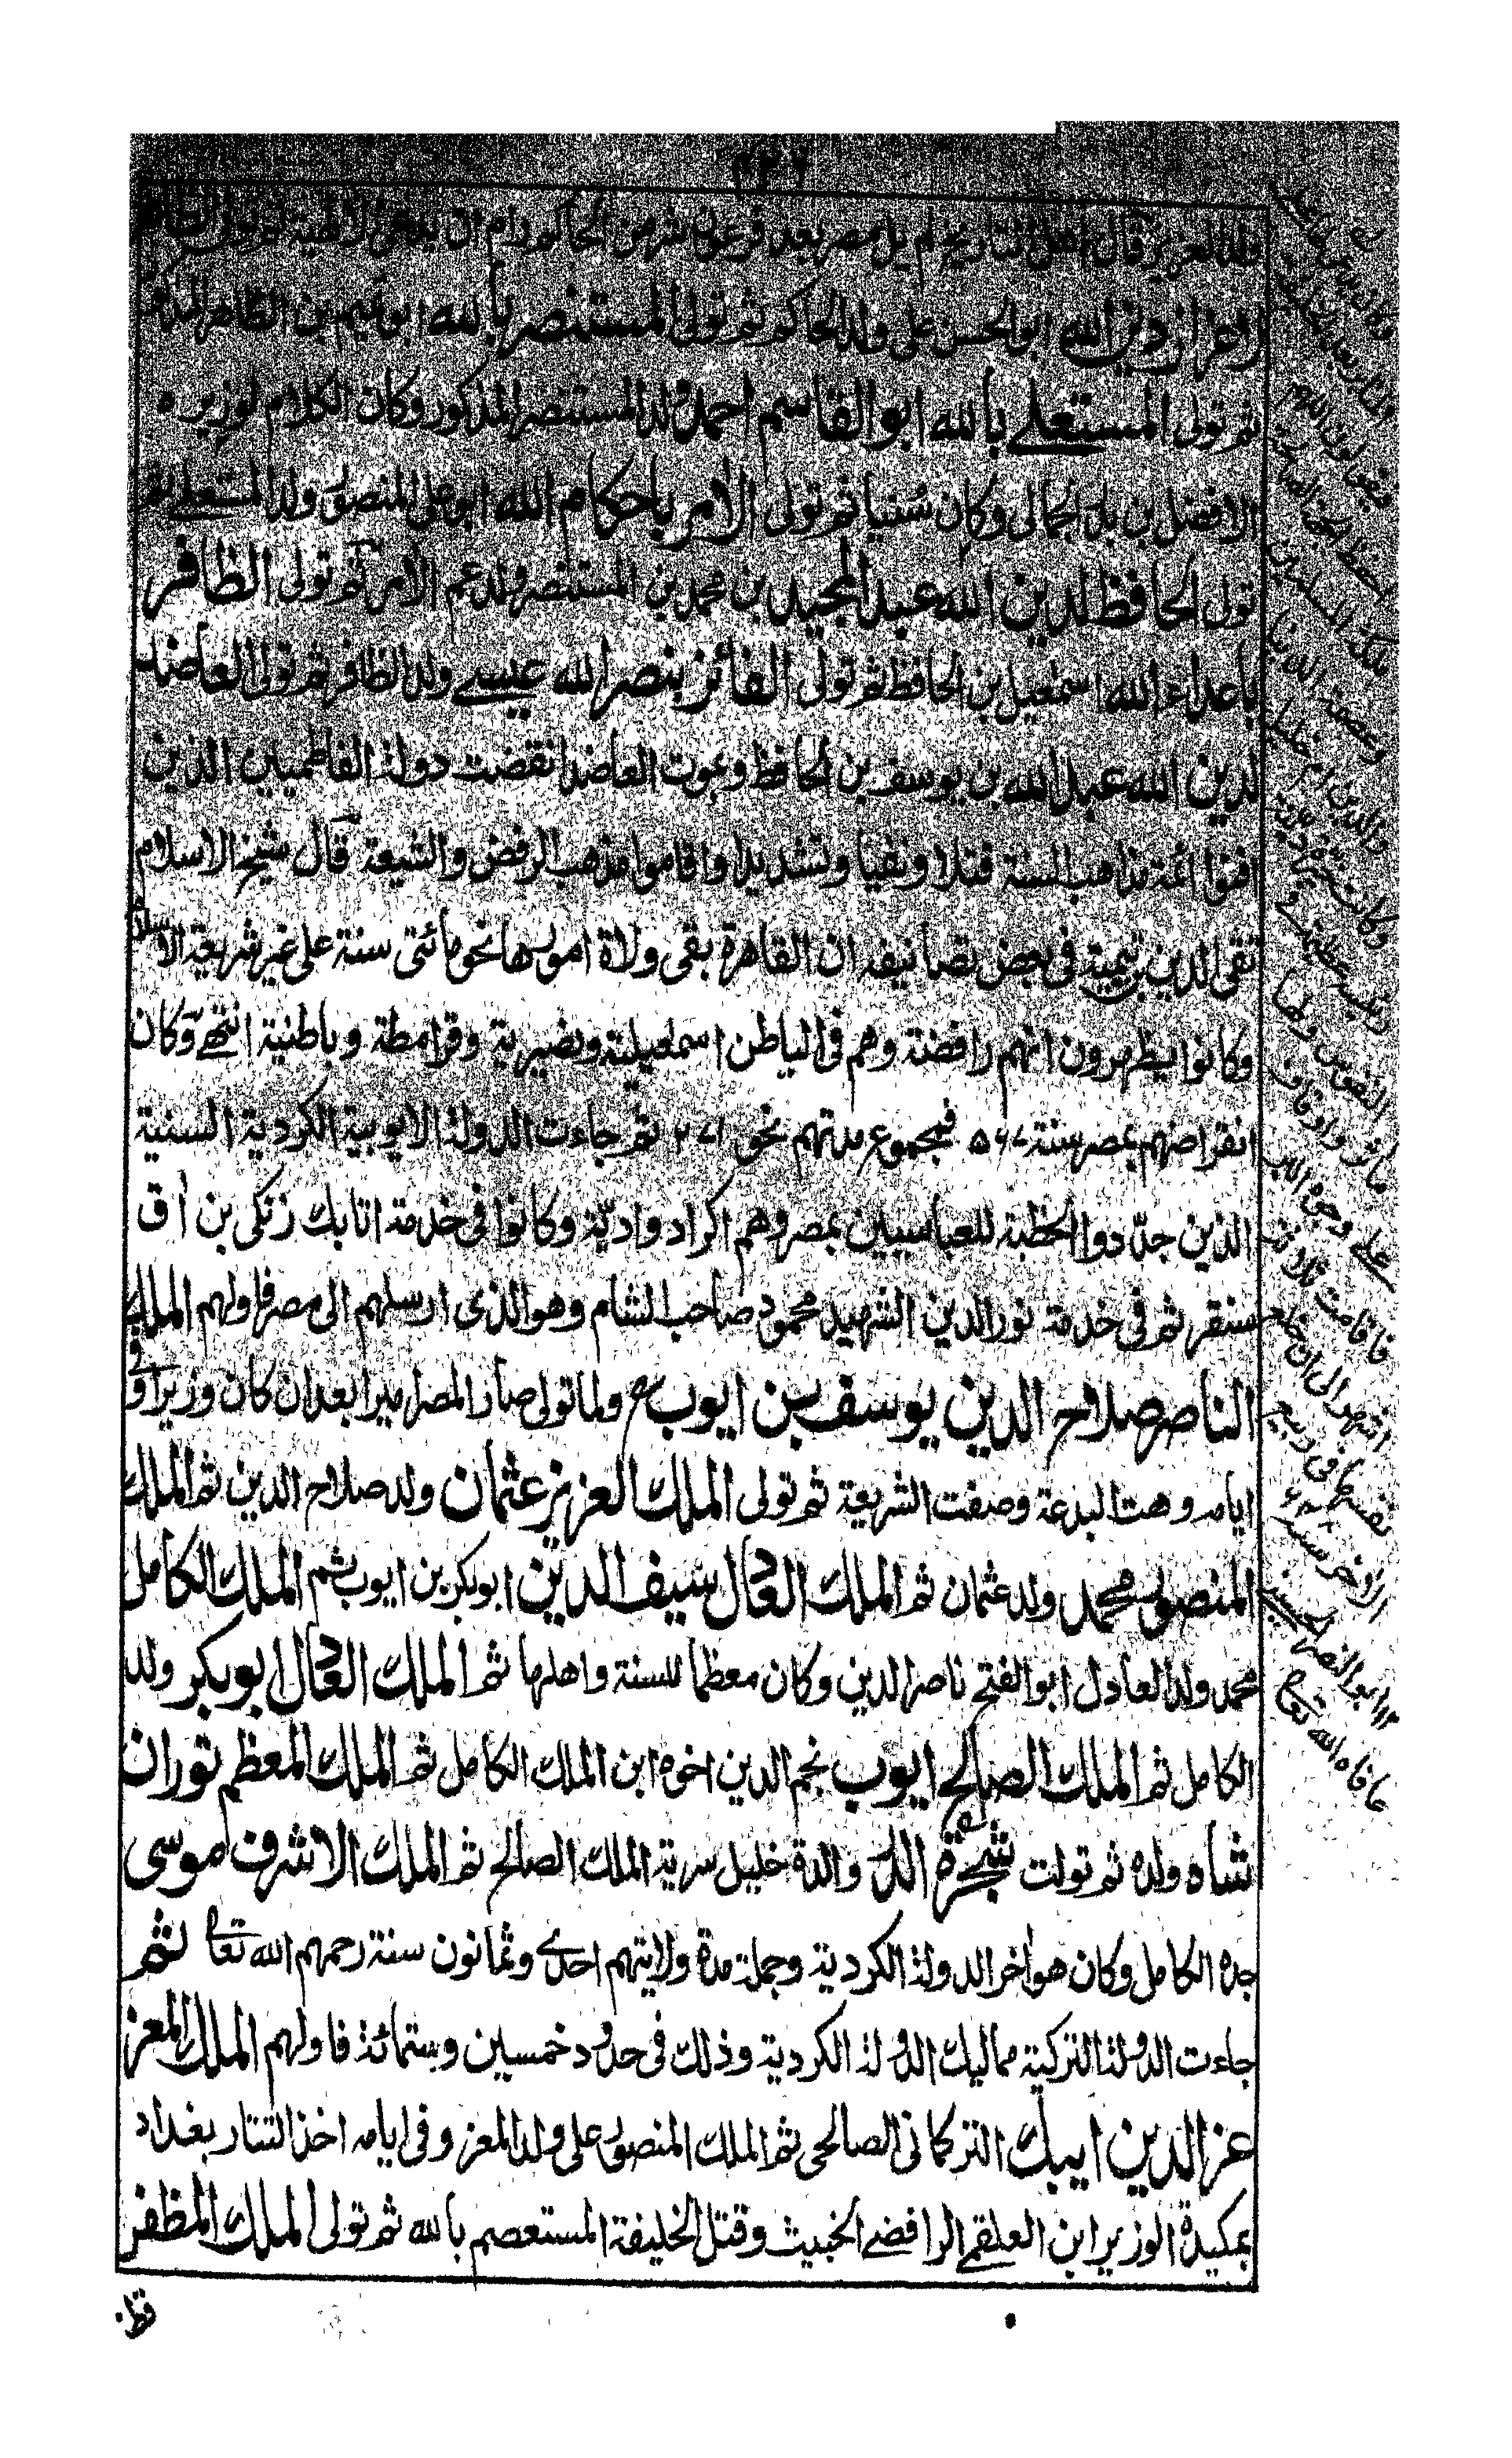 ولد العزيز قال اهل التاريخ لم يل مصر بعد فرعون شر من الحاكم رام ان يدعى الالهية ثم تولى الظاهر
لاعزاز دين الله ابو الحسن على ولد الحاكم ثم تولى المستنصر بالله ابو تميم بن الظاهر المذكور
ثم تولى المستعلے بالله ابو القاسم احمد ولد المستنصر المذكور وكان الكلام لوزيره
الافضل بن بدر الجمالى وكان سنيا ثم تولى الآمر باحكام الله ابو على المنصور ولد المستعلے ثم
تولى الحافظ لدين الله عبد المجيد بن محمد بن المستنصر ولد عم الآمر ثم تولى الظافر
باعداء الله اسمعيل بن الحافظ ثم تولى الفائز بنصر الله عيسے ولد الظافر ثم تولى العاضد
لدين الله عبد الله بن يوسف بن الحافظ وبموت العاضد انقضت دولة الفاطميين الذين
افنوا ائمة مذاهب السنة قتلا ونفيا وتشديدا واقاموا مذهب الرفض والشيعة قال شيخ الاسلام
تقى الدين بن تيمية فى بعض تصانيفه ان القاهرة بقى ولاة امورها نحو مائتى سنة على غير شريعة الاسلام
وكانوا يظهرون انهم رافضة وهم فى الباطن اسمعيلية ونصيرية وقرامطة وباطنية انتهے وكان
انقراضهم بمصر سنة ۵۶۷ فمجموع مدتهم نحو ۲۷۱ ثم جاءت الدولة الايوبية الكردية السنية
الذين جدّدوا الخطبة للعباسيين بمصر وهم اكراد وادیّة وكانوا فى خدمة اتابك زنكى بن اق
سنقر ثم فى خدمة نور الدين الشهيد محمود صاحب الشام وهو الذى ارسلهم الى مصر فاولهم الملك
الناصر صلاح الدين يوسف بن ايوب ولما تولى صار المصر ميرا بعد ان كان وزيرا وفى
ايامه وهت البدعة وصفت الشريعة ثم تولى الملك العزيز عثمان ولد صلاح الدين ثم الملك
المنصور محمد ولد عثمان ثم الملك العادل سيف الدين ابو بكر بن ايوب ثم الملك الكامل
محمد ولد العادل ابو الفتح ناصر الدين وكان معظما للسنة واهلها ثم الملك العادل ابو بكر ولد
الكامل ثم الملك الصالح ايوب نجم الدين اخوه ابن الملك الكامل ثم الملك المعظم توران
شاه ولده ثم تولت شجرة الدر والدة خليل سرية الملك الصالح ثم الملك الاشرف موسى
جده الكامل وكان هو اخر الدولة الكردية وجملة مدة ولايتهم احدے وثمانون سنة رحمهم الله تعالى ثم
جاءت الدولة التركية مماليك الدولة الكردية وذلك فى حدود خمسين وستمائة فاولهم الملك المعز
عز الدين ايبك التركمانى الصالحى ثم الملك المنصور على ولد المعز وفى ايامه اخذ التتار بغداد
بمكيدة الوزير ابن العلقمے الرافضے الخبيث وقتل الخليفة المستعصم بالله ثم تولى الملك المظفر
قط
فاقامت ثلاثة
اشهر الى ان
نفسها فى ربيع
الآخر سنة ۶۴۸
ابو النصر
عافاه الله تعالى